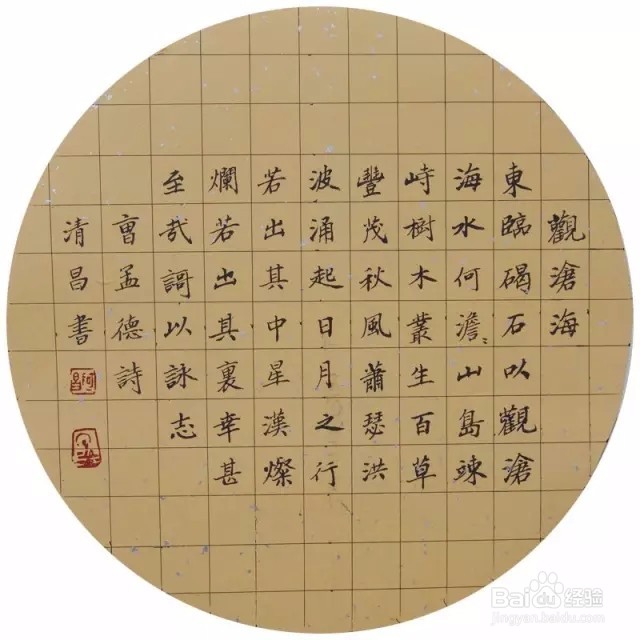 觀滄海
東臨碣石以觀滄
海水何澹〻山島竦
峙樹木叢生百草
豐茂秋風蕭瑟洪
波涌起日月之行
若出其中星漢燦
爛若出其裏幸甚
至哉謌以詠志
曹孟德詩
清昌書
Baidu经验
jingyan.baidu.com